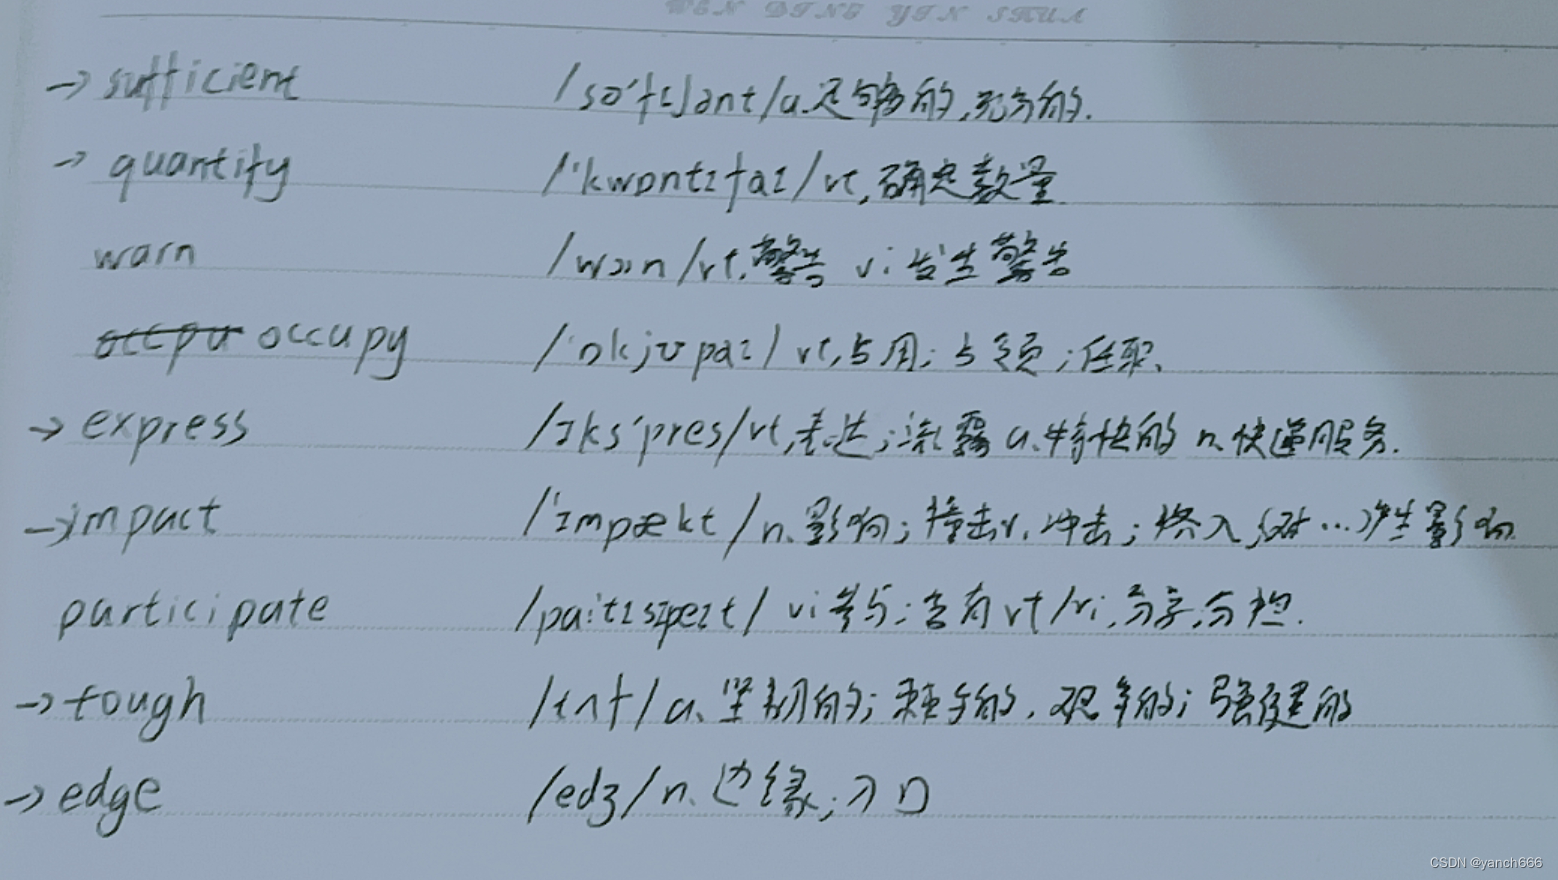 WEN DING YIN SHUA
→ sufficient /sə'fɪʃənt/a.足够的,充分的.
→ quantify /'kwɒntɪfaɪ/vt,确定数量
warn /wɔːn/vt.警告 vi发生警告
occupy /'ɒkjʊpaɪ/ vt,占用;占领;任职.
→ express /ɪks'pres/vt,表达;流露 a.特快的 n.快递服务.
→impact /'ɪmpækt/n.影响;撞击v.冲击;挤入,(对…)产生影响
participate /pɑ:tɪsɪpeɪt/ vi参与;含有vt/vi,分享,分担.
→tough /tʌf/a.坚韧的;棘手的.艰辛的;强健的
→edge /edʒ/n.边缘;刀口
CSDN @yanch666